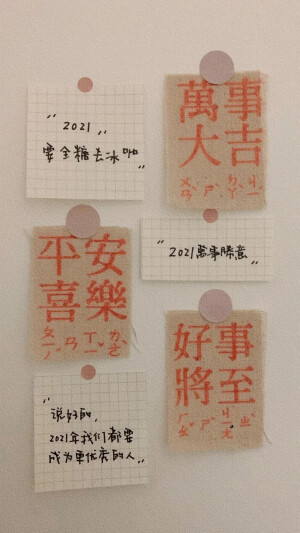 "2021,
要全糖去冰"
萬事
大吉
ㄨㄢˋ ㄕˋ ㄉㄚˋ ㄐㄧˊ
平安
喜樂
ㄆㄧㄥˊ ㄢ ㄒㄧˇ ㄌㄜˋ
"2021萬事勝意"
好事
將至
ㄏㄠˇ ㄕˋ ㄐㄧㄤ ㄓˋ
"说好的,
2021年我们都要
成为更优秀的人"